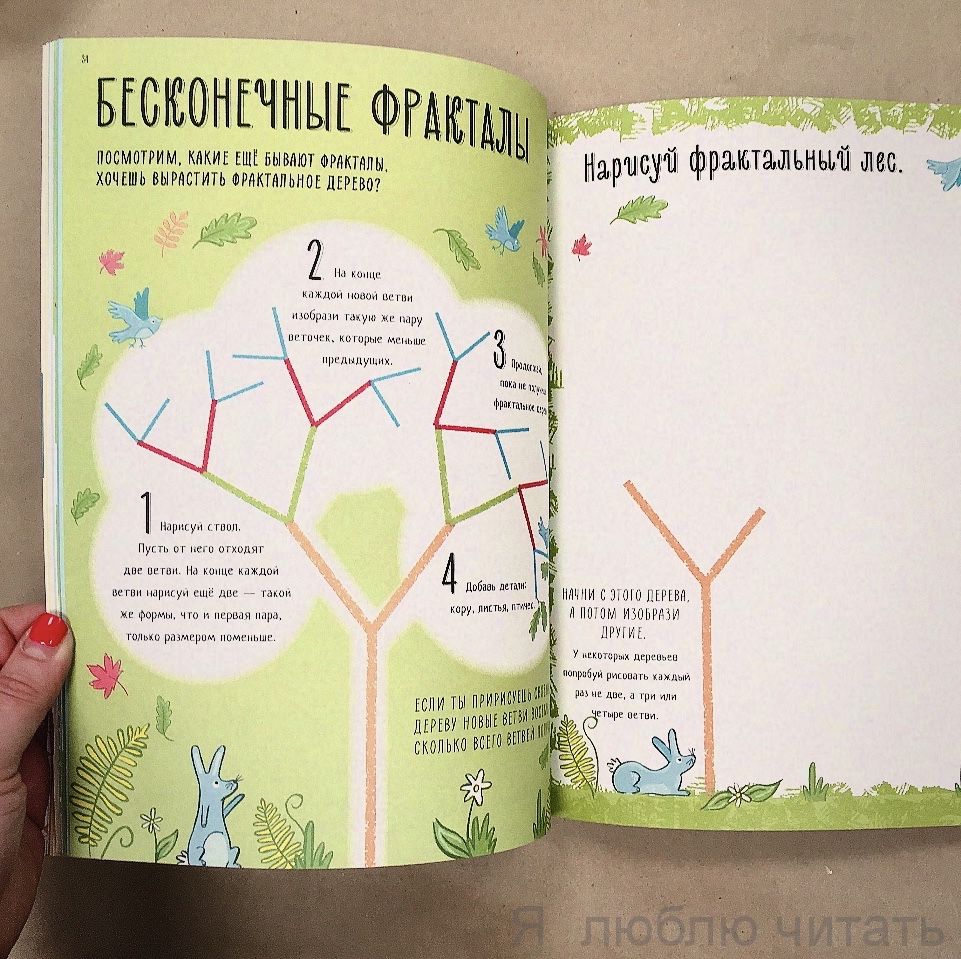 34
БЕСКОНЕЧНЫЕ ФРАКТАЛЫ
ПОСМОТРИМ, КАКИЕ ЕЩЁ БЫВАЮТ ФРАКТАЛЫ.
ХОЧЕШЬ ВЫРАСТИТЬ ФРАКТАЛЬНОЕ ДЕРЕВО?
2 На конце
каждой новой ветви
изобрази такую же пару
веточек, которые меньше
предыдущих.
3 Продолжай,
пока не
фрактальное
1 Нарисуй ствол.
Пусть от него отходят
две ветви. На конце каждой
ветви нарисуй ещё две — такой
же формы, что и первая пара,
только размером поменьше.
4 Добавь детали:
кору, листья, птичек.
ЕСЛИ ТЫ ПРИРИСУЕШЬ
ДЕРЕВУ НОВЫЕ ВЕТВИ
СКОЛЬКО ВСЕГО ВЕТВЕЙ
Нарисуй фрактальный лес.
НАЧНИ С ЭТОГО ДЕРЕВА,
А ПОТОМ ИЗОБРАЗИ
ДРУГИЕ.
У некоторых деревьев
попробуй рисовать каждый
раз не две, а три или
четыре ветви.
Я люблю читать